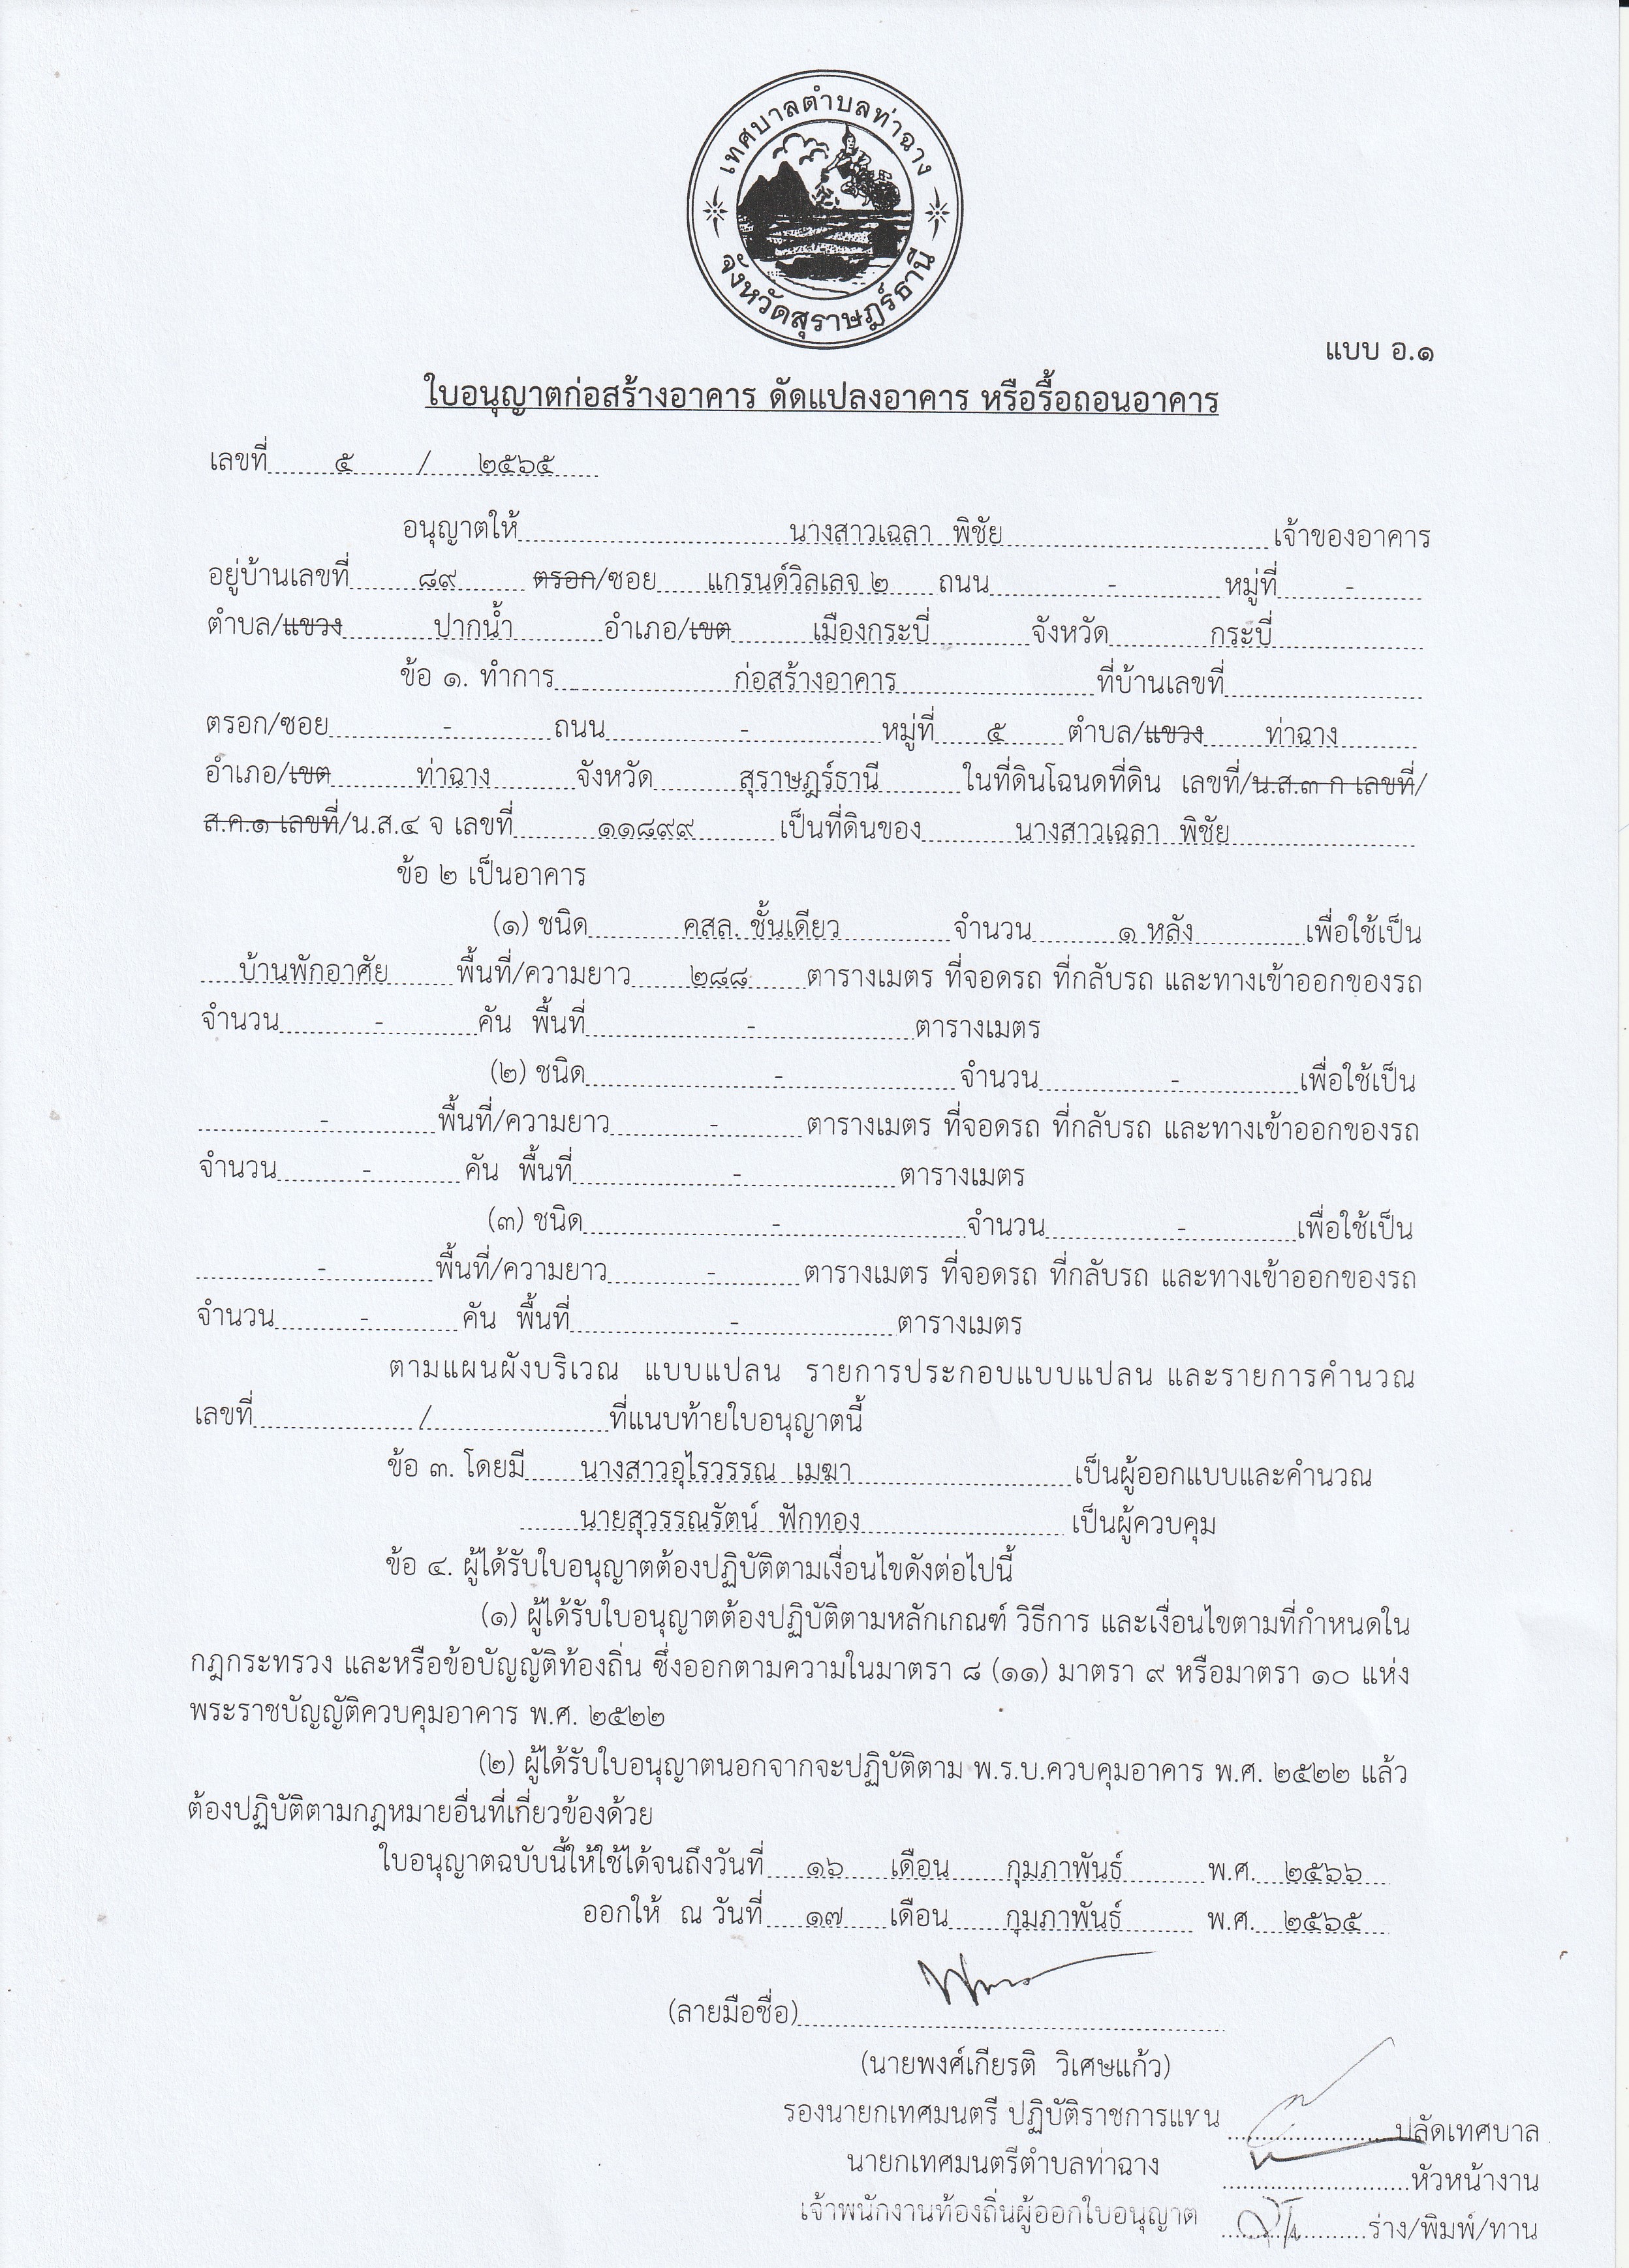 เทศบาลตำบลท่าฉาง
จังหวัดสุราษฎร์ธานี
แบบ อ.๑
ใบอนุญาตก่อสร้างอาคาร ดัดแปลงอาคาร หรือรื้อถอนอาคาร
เลขที่ ๕ / ๒๕๖๕
อนุญาตให้ นางสาวเฉลา พิชัย เจ้าของอาคาร
อยู่บ้านเลขที่ ๘๙ ตรอก/ซอย แกรนด์วิลเลจ ๒ ถนน - หมู่ที่ -
ตำบล/แขวง ปากน้ำ อำเภอ/เขต เมืองกระบี่ จังหวัด กระบี่
ข้อ ๑. ทำการ ก่อสร้างอาคาร ที่บ้านเลขที่
ตรอก/ซอย - ถนน - หมู่ที่ ๕ ตำบล/แขวง ท่าฉาง
อำเภอ/เขต ท่าฉาง จังหวัด สุราษฎร์ธานี ในที่ดินโฉนดที่ดิน เลขที่/น.ส.๓ ก เลขที่/
ส.ค.๑ เลขที่/น.ส.๔ จ เลขที่ ๑๑๘๙๙ เป็นที่ดินของ นางสาวเฉลา พิชัย
ข้อ ๒ เป็นอาคาร
(๑) ชนิด คสล. ชั้นเดียว จำนวน ๑ หลัง เพื่อใช้เป็น
บ้านพักอาศัย พื้นที่/ความยาว ๒๘๘ ตารางเมตร ที่จอดรถ ที่กลับรถ และทางเข้าออกของรถ
จำนวน - คัน พื้นที่ - ตารางเมตร
(๒) ชนิด - จำนวน - เพื่อใช้เป็น
- พื้นที่/ความยาว - ตารางเมตร ที่จอดรถ ที่กลับรถ และทางเข้าออกของรถ
จำนวน - คัน พื้นที่ - ตารางเมตร
(๓) ชนิด - จำนวน - เพื่อใช้เป็น
- พื้นที่/ความยาว - ตารางเมตร ที่จอดรถ ที่กลับรถ และทางเข้าออกของรถ
จำนวน - คัน พื้นที่ - ตารางเมตร
ตามแผนผังบริเวณ แบบแปลน รายการประกอบแบบแปลน และรายการคำนวณ
เลขที่ / ที่แนบท้ายใบอนุญาตนี้
ข้อ ๓. โดยมี นางสาวอุไรวรรณ เมฆา เป็นผู้ออกแบบและคำนวณ
นายสุวรรณรัตน์ ฟักทอง เป็นผู้ควบคุม
ข้อ ๔. ผู้ได้รับใบอนุญาตต้องปฏิบัติตามเงื่อนไขดังต่อไปนี้
(๑) ผู้ได้รับใบอนุญาตต้องปฏิบัติตามหลักเกณฑ์ วิธีการ และเงื่อนไขตามที่กำหนดใน
กฎกระทรวง และหรือข้อบัญญัติท้องถิ่น ซึ่งออกตามความในมาตรา ๘ (๑๑) มาตรา ๙ หรือมาตรา ๑๐ แห่ง
พระราชบัญญัติควบคุมอาคาร พ.ศ. ๒๕๒๒
(๒) ผู้ได้รับใบอนุญาตนอกจากจะปฏิบัติตาม พ.ร.บ.ควบคุมอาคาร พ.ศ. ๒๕๒๒ แล้ว
ต้องปฏิบัติตามกฎหมายอื่นที่เกี่ยวข้องด้วย
ใบอนุญาตฉบับนี้ให้ใช้ได้จนถึงวันที่ ๑๖ เดือน กุมภาพันธ์ พ.ศ. ๒๕๖๖
ออกให้ ณ วันที่ ๑๗ เดือน กุมภาพันธ์ พ.ศ. ๒๕๖๕
(ลายมือชื่อ)
(นายพงศ์เกียรติ วิเศษแก้ว)
รองนายกเทศมนตรี ปฏิบัติราชการแทน ปลัดเทศบาล
นายกเทศมนตรีตำบลท่าฉาง หัวหน้างาน
เจ้าพนักงานท้องถิ่นผู้ออกใบอนุญาต ร่าง/พิมพ์/ทาน